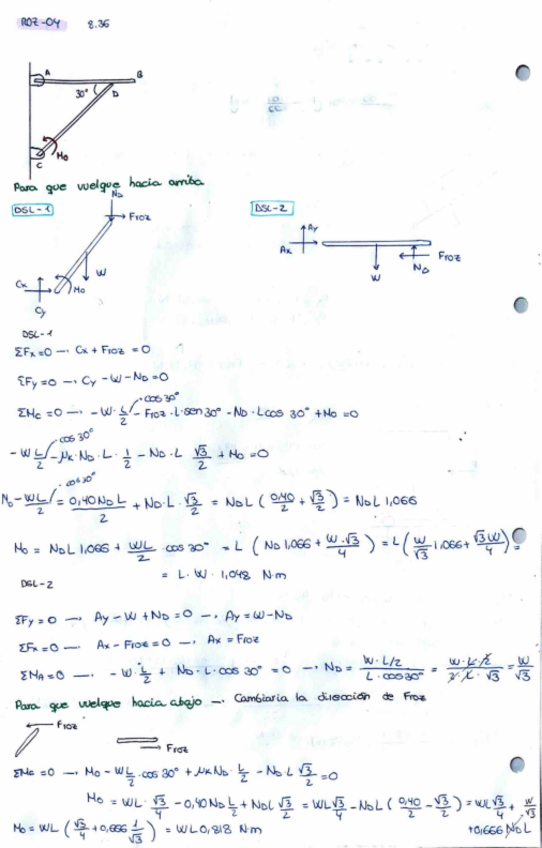 ROZ-04 8.36
A B
30° D
M₀
C
Para que vuelque hacia arriba
DSL-1 N_D DSL-2
Froz
Ay
Ax Froz
W N_D
W
Cx M₀
Cy
DSL-1
ΣFx=0 → Cx + Froz = 0
ΣFy=0 → Cy - W - N_D = 0
ΣM_C = 0 → - W · L/2 · cos 30° - Froz · L · sen 30° - N_D · L cos 30° + M₀ = 0
- W L/2 · cos 30° - μ_K · N_D · L · 1/2 - N_D · L √3/2 + M₀ = 0
M₀ - WL/2 · cos 30° = 0,40 N_D L/2 + N_D · L · √3/2 = N_D L (0,40/2 + √3/2) = N_D L 1,066
M₀ = N_D L 1,066 + WL/2 · cos 30° = L (N_D 1,066 + W·√3/4) = L (W/√3 1,066 + √3W/4) =
= L · W · 1,048 N·m
DSL-2
ΣFy = 0 → Ay - W + N_D = 0 → Ay = W - N_D
ΣFx = 0 → Ax - Froz = 0 → Ax = Froz
ΣM_A = 0 → - W · L/2 + N_D · L · cos 30° = 0 → N_D = W · L/2 / L · cos 30° = W · L · 2 / 2 · L · √3 = W/√3
Para que vuelque hacia abajo → Cambiaria la dirección de Froz
Froz
Froz
ΣM_C = 0 → M₀ - W L/2 · cos 30° + μ_K N_D · L/2 - N_D L √3/2 = 0
M₀ = WL · √3/4 - 0,40 N_D L/2 + N_D L √3/2 = WL √3/4 - N_D L (0,40/2 - √3/2) = WL √3/4 + W/√3
+0,666 N_D L
M₀ = WL (√3/4 + 0,666 1/√3) = WL 0,818 N·m